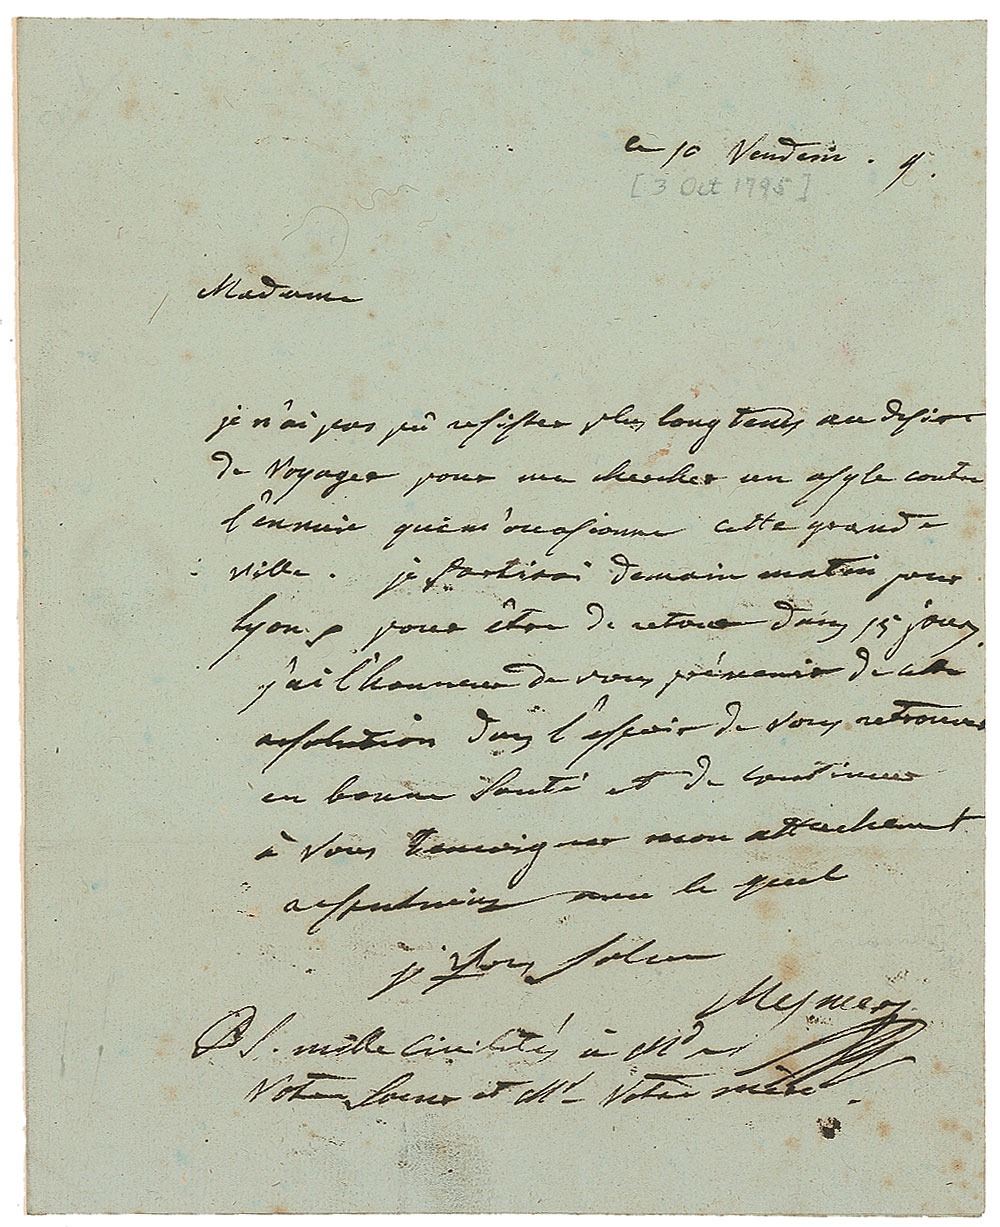 le 10 Vendém. 9.
[3 Oct 1795]
Madame
je n'ai pas pû resister plus longtems au desire
de Voyager pour me chercher un asyle contre
l'ennuie que m'occasionne cette grande
ville. je partirai demain matin pour
Lyon, pour être de retour dans 15 jours.
j'ai l'honneur de vous prévenir de cette
resolution dans l'espoir de vous retrouver
en bonne Santé et de continuer
à Vous temoigner mon attachement
respectueux avec le quel
je Vous Salue
Mesmer
PS. mille civilités à Md
Votre Soeur et Md Votre mère.